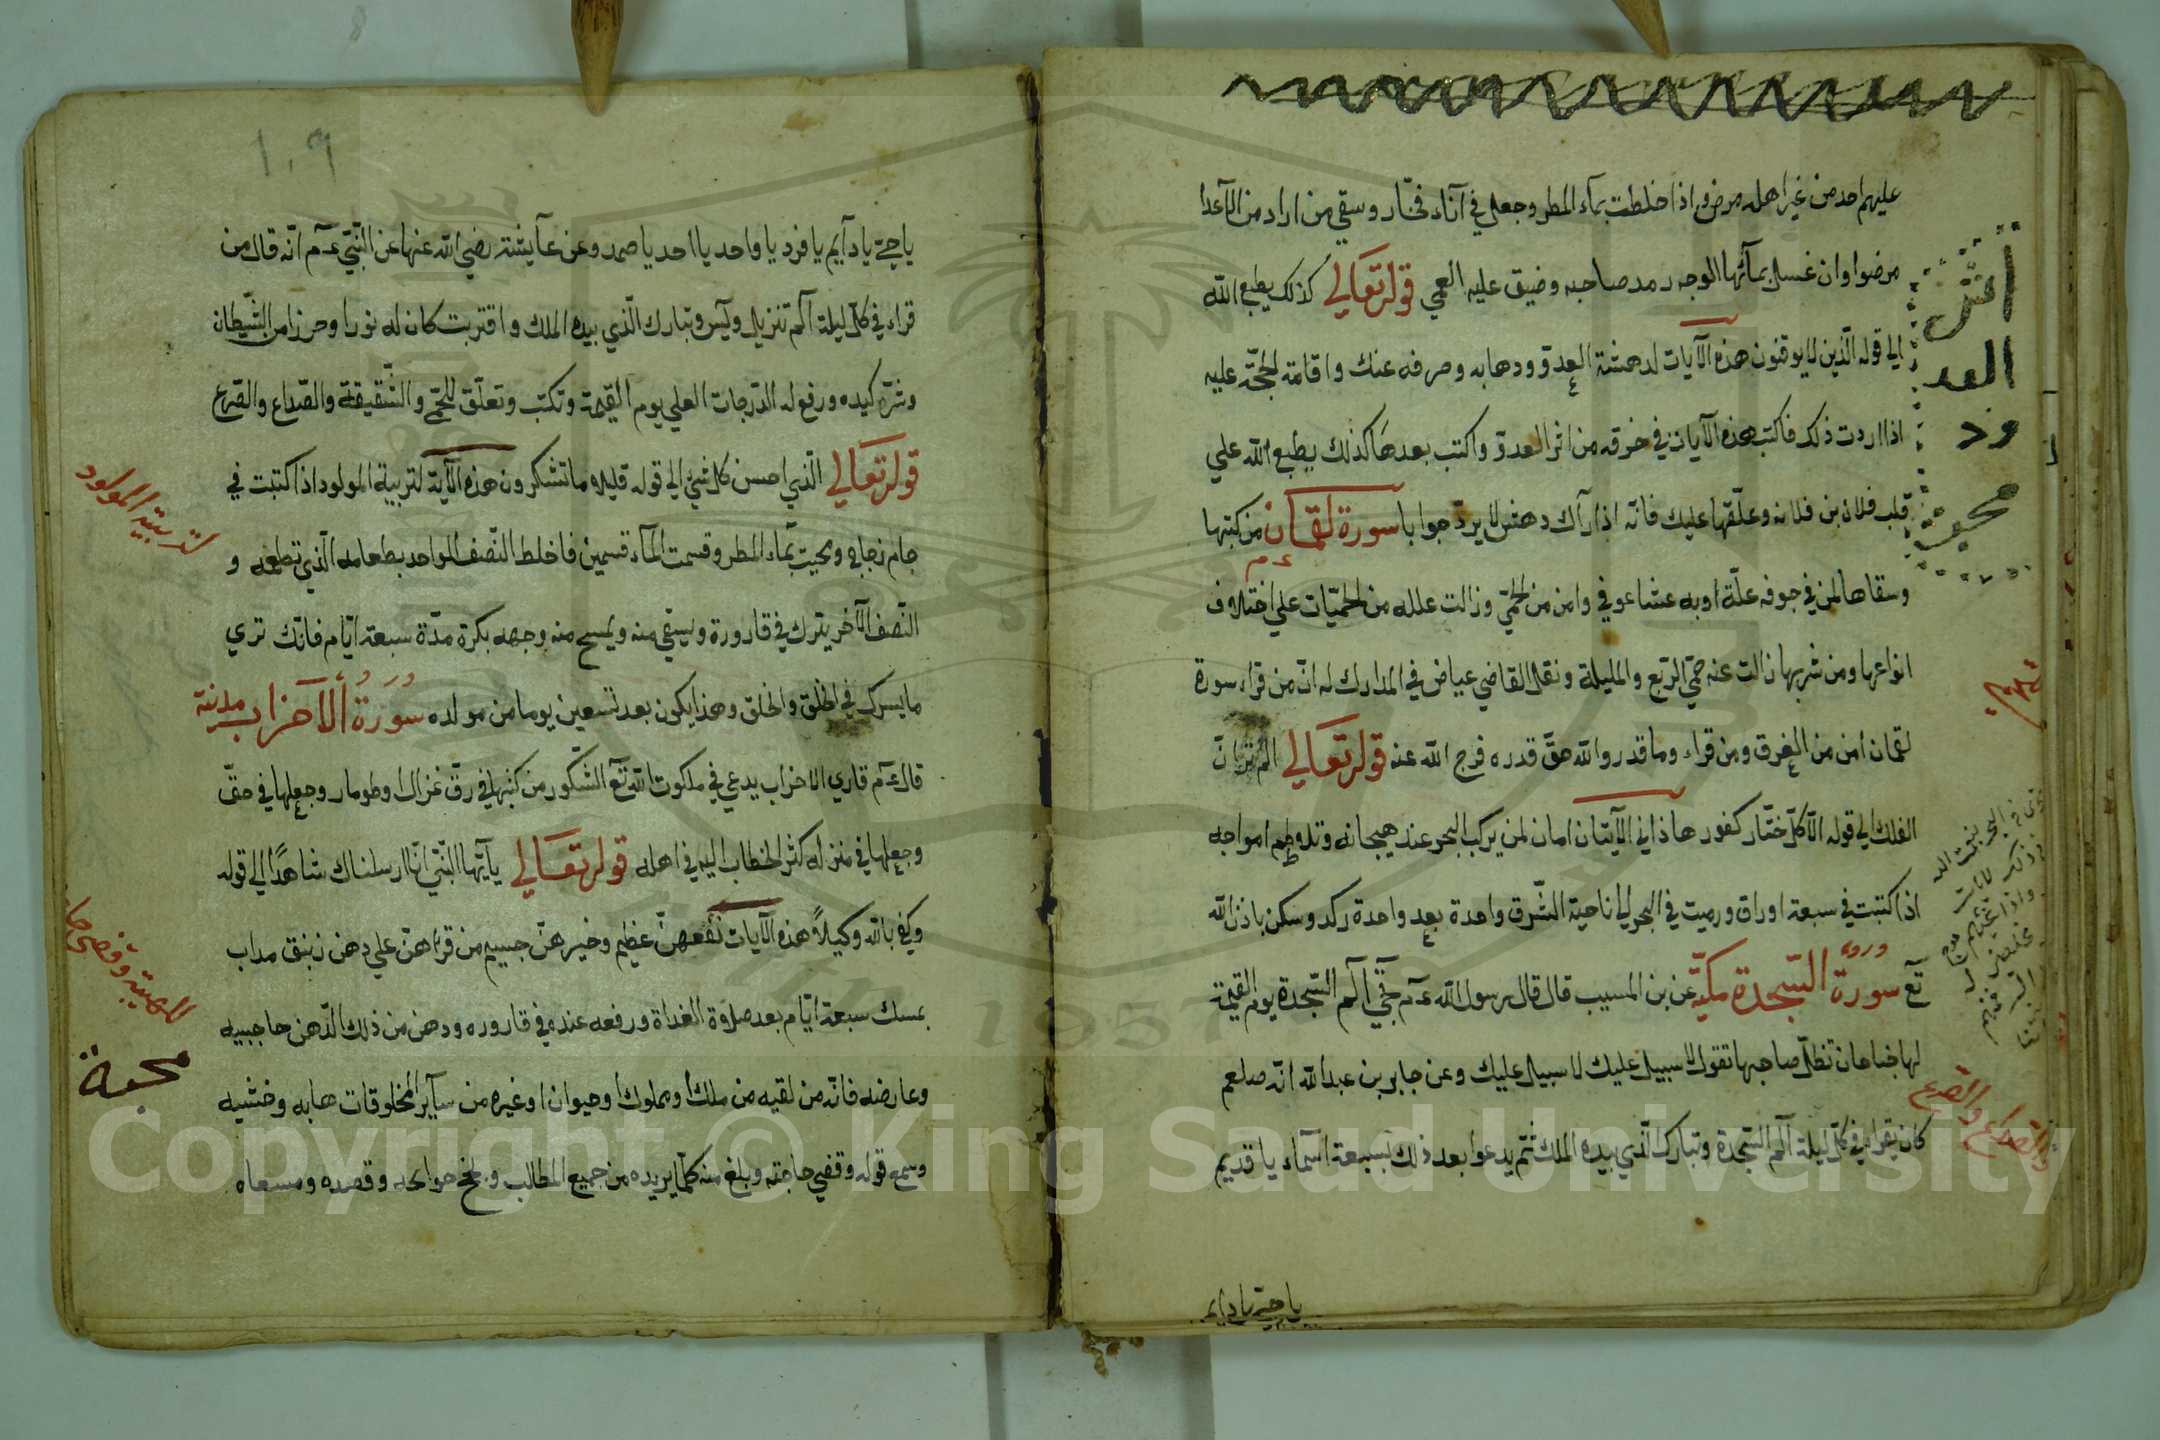 عليهم احد من غير اهله مرض واذا خلطت بمآء المطر وجعل في آناء فخّار وسقي من اراد من الآعدا
مرضوا وان غسل بمآئها الوجه رمد صاحبه وضيق عليه العمي قوله تعالي كذلك يطبع الله
الي قوله الّذين لا يوقنون هذه الآيات لدهشة العدوّ ودهابه وصرفه عنك واقامة الحجّة عليه
اذا اردت ذلك فاكتب هذه الآيات في خرقه من اثر العدوّ واكتب بعدها كذلك يطبع الله علي
قلب فلان بن فلانه وعلّقها عليك فانّه اذا رآك دهش لا يردّ جوابا سورة لقمان من كتبها
ع م
وسقاها لمن في جوفه علّة او به عشا عوفي وامن من الحمّي وزالت علله من الحميّات علي اختلاف
انواعها ومن شربها زالت عنه حمّي الربع والمليلة ونقل القاضي عياض في المدارك له انّ من قراء سورة
لقمان امن من الغرق ومن قراء وما قدروا الله حقّ قدره فرج الله عنه قوله تعالي الم تر انّ
الفلك الي قوله الّا كلّ ختّار كفور هاذاني الآيتان امان لمن يركب البحر عند هيجانه وتلاوطم امواجه
اذا كتبت في سبعة اوراق ورميت في البحر الي ناحية الشّرق واحدة بعد واحدة ركد وسكن باذن الله
تع سورة السّجدة مكيّة عن بن المسيب قال قال رسول الله ع م تجّئ الم السّجدة يوم القيمة
لها جناحان تظلّ صاحبها تقول لا سبيل عليك لا سبيل عليك وعن جابر بن عبد الله انّه صلعم
كان يقراء في كلّ ليلة الم السّجدة وتبارك الّذي بيده الملك ثمّ يدعوا بعد ذلك بسبعة اسّماء يا قديم
يا حيّ يا دايم
اثر
العد
ود
الصداع والصرع
١٠٩
يا حيّ يا دآيم يا فرد يا واحد يا احد يا صمد وعن عآيشة رضي الله عنها عن النّبيّ ع م انّه قال من
قراء في كلّ ليلة الم تنزيل ويس وتبارك الّذي بيده الملك واقتربت كان له نورا وحرزا من الشّيطان
وشرّ كيده ورفع له الدّرجات العلي يوم القيمة وتكتب وتعلّق للحمّي والشّقيقة والصّداع والصّرع
قوله تعالي الّذي احسن كلّ شئ الي قوله قليلا ما تشكرون هذه الآية لتربية المولود اذا كتبت في
جام زجاج ومحيت بمآء المطر وقسمت المآء قسمين فاخلط النّصف الواحد بطعامه الّذي تطعمه و
النّصف الآخر يترك في قارورة ويسقي منه ويمسح منه وجهه بكرة مدّة سبعة ايّام فانّك تري
ما يسرك في الخلق والخلق وهذا يكون بعد تسعين يوما من مولده سورة الآحزاب مدنيّة
قال ع م قاري الاحزاب يدعي في ملكوت الله تع الشّكور من كتبها في رقّ غزال او طومار وجعلها في حقّ
وجعلها في منزله كثر الخطاب اليه في اهله قوله تعالي يآيّها النّبيّ انّا ارسلناك شاهدًا الي قوله
وكفي بالله وكيلاً هذه الآيات نفعهنّ عظيم وخيرهنّ جسيم من قراهنّ علي دهن زنبق مداب
بمسك سبعة ايّام بعد صلاوة الغداة ورفعه عنده في قاروره ودهن من ذلك الدّهن حاجبيه
وعارضه فانّه من لقيه من ملك او مملوك او حيوان او غيره من سآير المخلوقات هابه وخشيه
وسمع قوله وقضي حاجته وبلغ منه كلّما يريده من جميع المطالب ونجح حوايجه وقصده ومسعاه
لتربية المولود
للهيبة وقضي حا
محبة
Copyright © King Saud University
1957